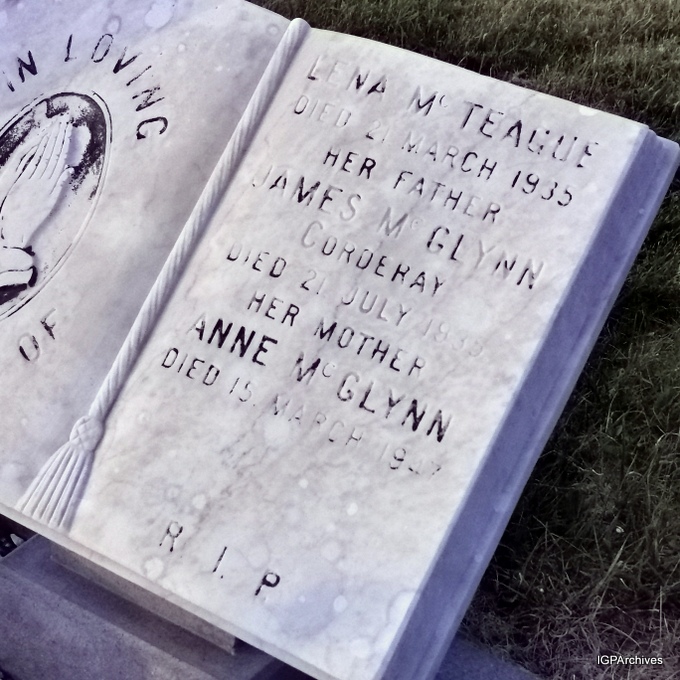 IN LOVING
OF
LENA McTEAGUE
DIED 21 MARCH 1935
HER FATHER
JAMES McGLYNN
CORDERAY
DIED 21 JULY
HER MOTHER
ANNE McGLYNN
DIED 15. MARCH
R. I. P
IGPArchives